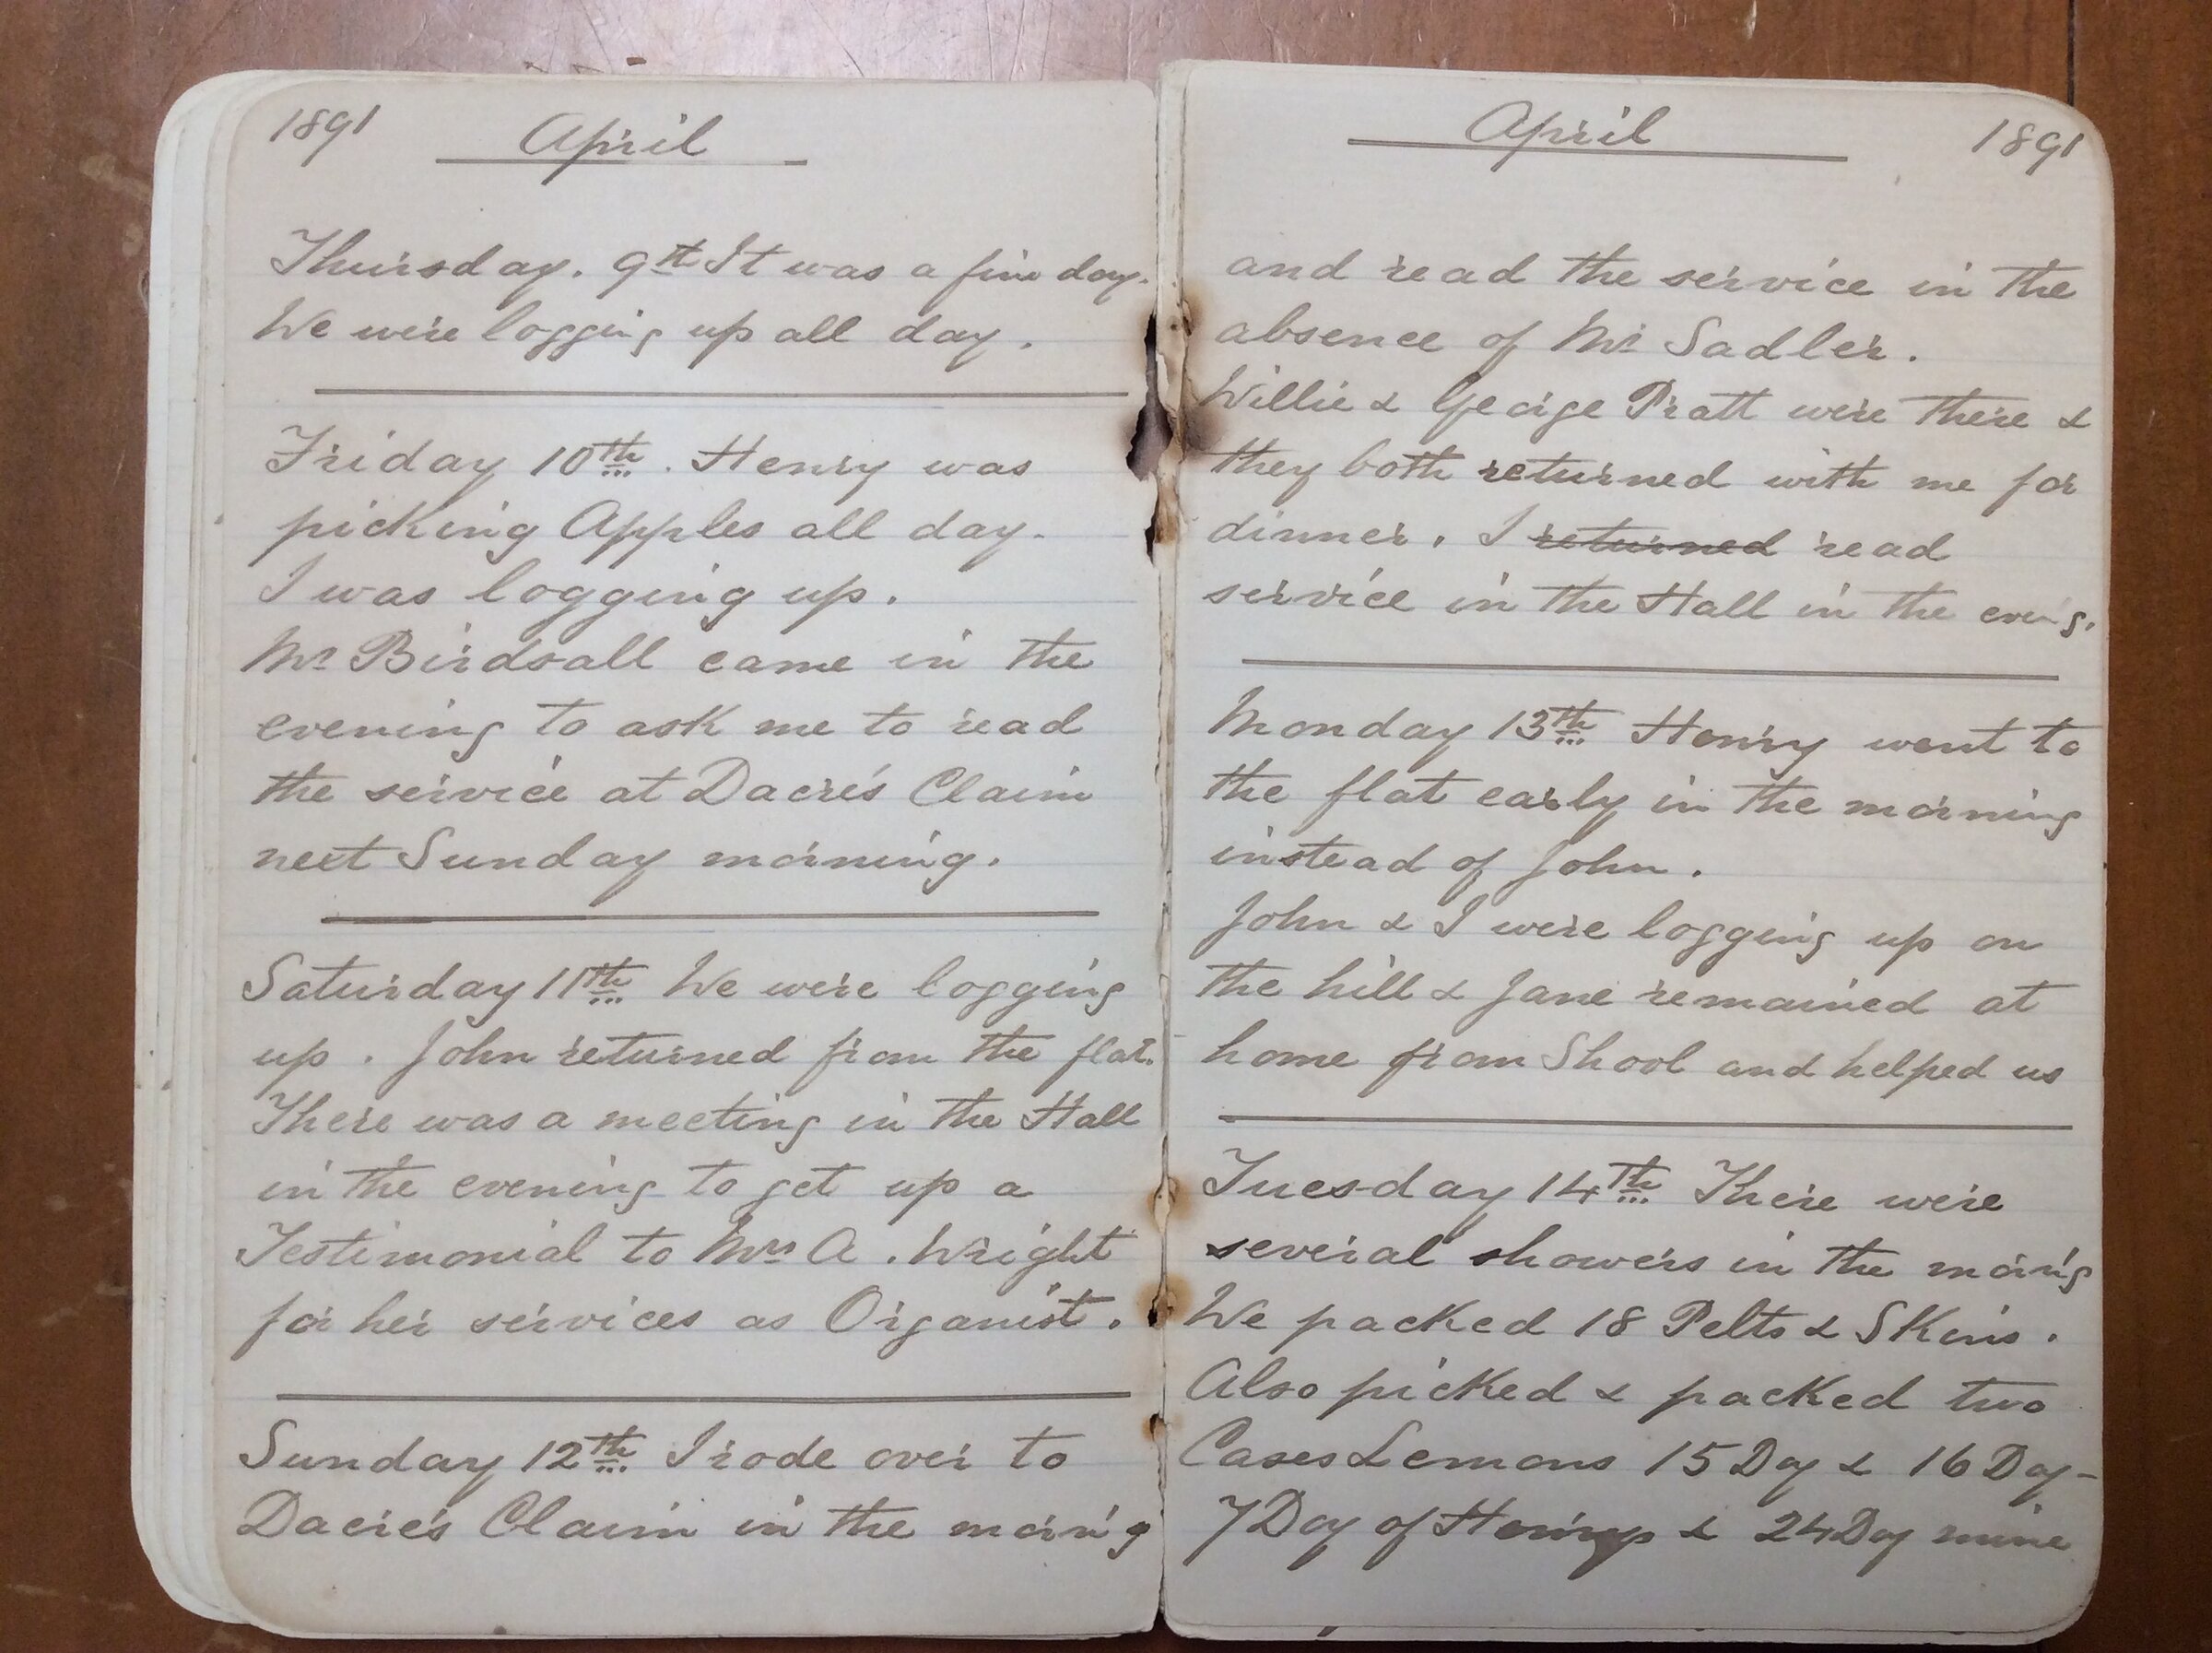 1891 April
Thursday. 9th It was a fine day.
We were logging up all day.
Friday 10th. Henry was
picking Apples all day.
I was logging up.
Mr Birdsall came in the
evening to ask me to read
the service at Dacre's Claim
next Sunday morning.
Saturday 11th We were logging
up. John returned from the flat.
There was a meeting in the Hall
in the evening to get up a
Testimonial to Mrs A. Wright
for her services as Organist.
Sunday 12th I rode over to
Dacre's Claim in the morn'g
April 1891
and read the service in the
absence of Mr Sadler.
Willie & George Pratt were there &
they both returned with me for
dinner. I returned read
service in the Hall in the even'g.
Monday 13th Henry went to
the flat early in the morning
instead of John.
John & I were logging up on
the hill & Jane remained at
home from Shool and helped us
Tuesday 14th There were
several showers in the morn'g
We packed 18 Pelts & Skins.
Also picked & packed two
Cases Lemons 15 Doz & 16 Doz -
7 Doz of Henrys & 24 Doz mine